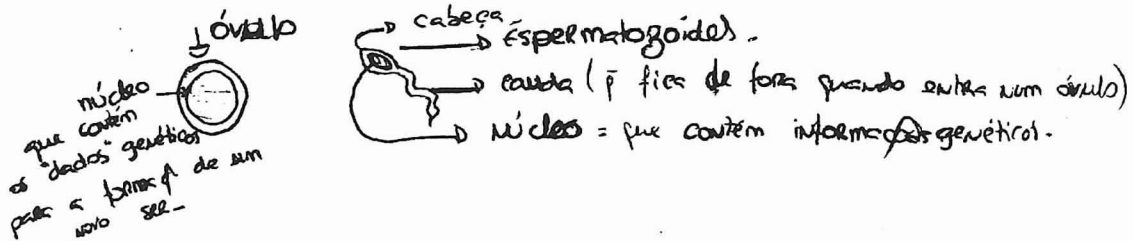 óvulo
núcleo
que contém
os "dados" genéticos
para a formaç de um
novo ser-
cabeça
Espermatozoides.
cauda (q̄ fica de fora quando entra num óvulo)
núcleo = que contém informações genéticas.